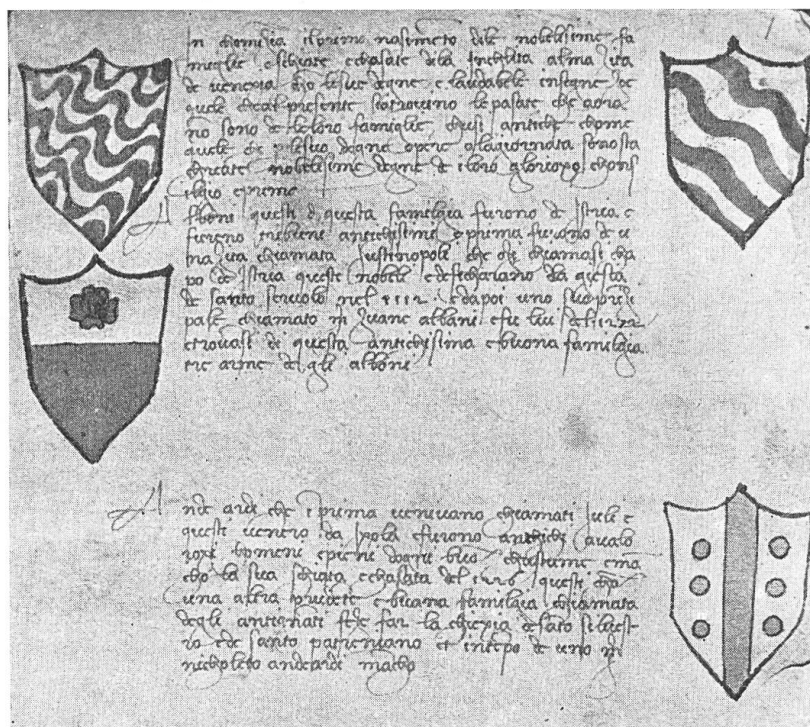 1
In chomizia il primo nasimeto dile nobelisime fa
meglie e schiate e chasate dela inchlita alma zita
de venexia chō le sue degne e laudabele insegne de
quele che al presente si atrovino le pasate che aora
nō sono de le loro famiglie chusi antiche chome
quele che p le suo degne opere ala giornata sono sta
chreate nobelisime degne de i loro gloriopo chons
ilgio e prima
Alboni questi di questa familgia furono de Istria e
fureno tribuni antichisimi e prima furono de u
na zita chiamata Justinopoli che ozi chiamasi cha
po de Istria queste nobele edefichariano la giesia
de santo servolo nel e dapoi uno suo prī
pale chiamato m zuane albani e fu lui
e trovasi di questa antichisima e buona familgia
tre arme de gli alboni
Andearde che i prima venivano chiamati Jule e
questi venero da Ixola e furono antichi e valo
roxi homeni e pieni dogni buō chostume e mā
cho la sua schiata e chasata del 1226 questi chō
una altra prudēte e buana familgia chiamata
degli antignati far la chiexia de sato silvest
ro e de santo paterniano et in tēpo de uno m
nicholeto andeardi macho